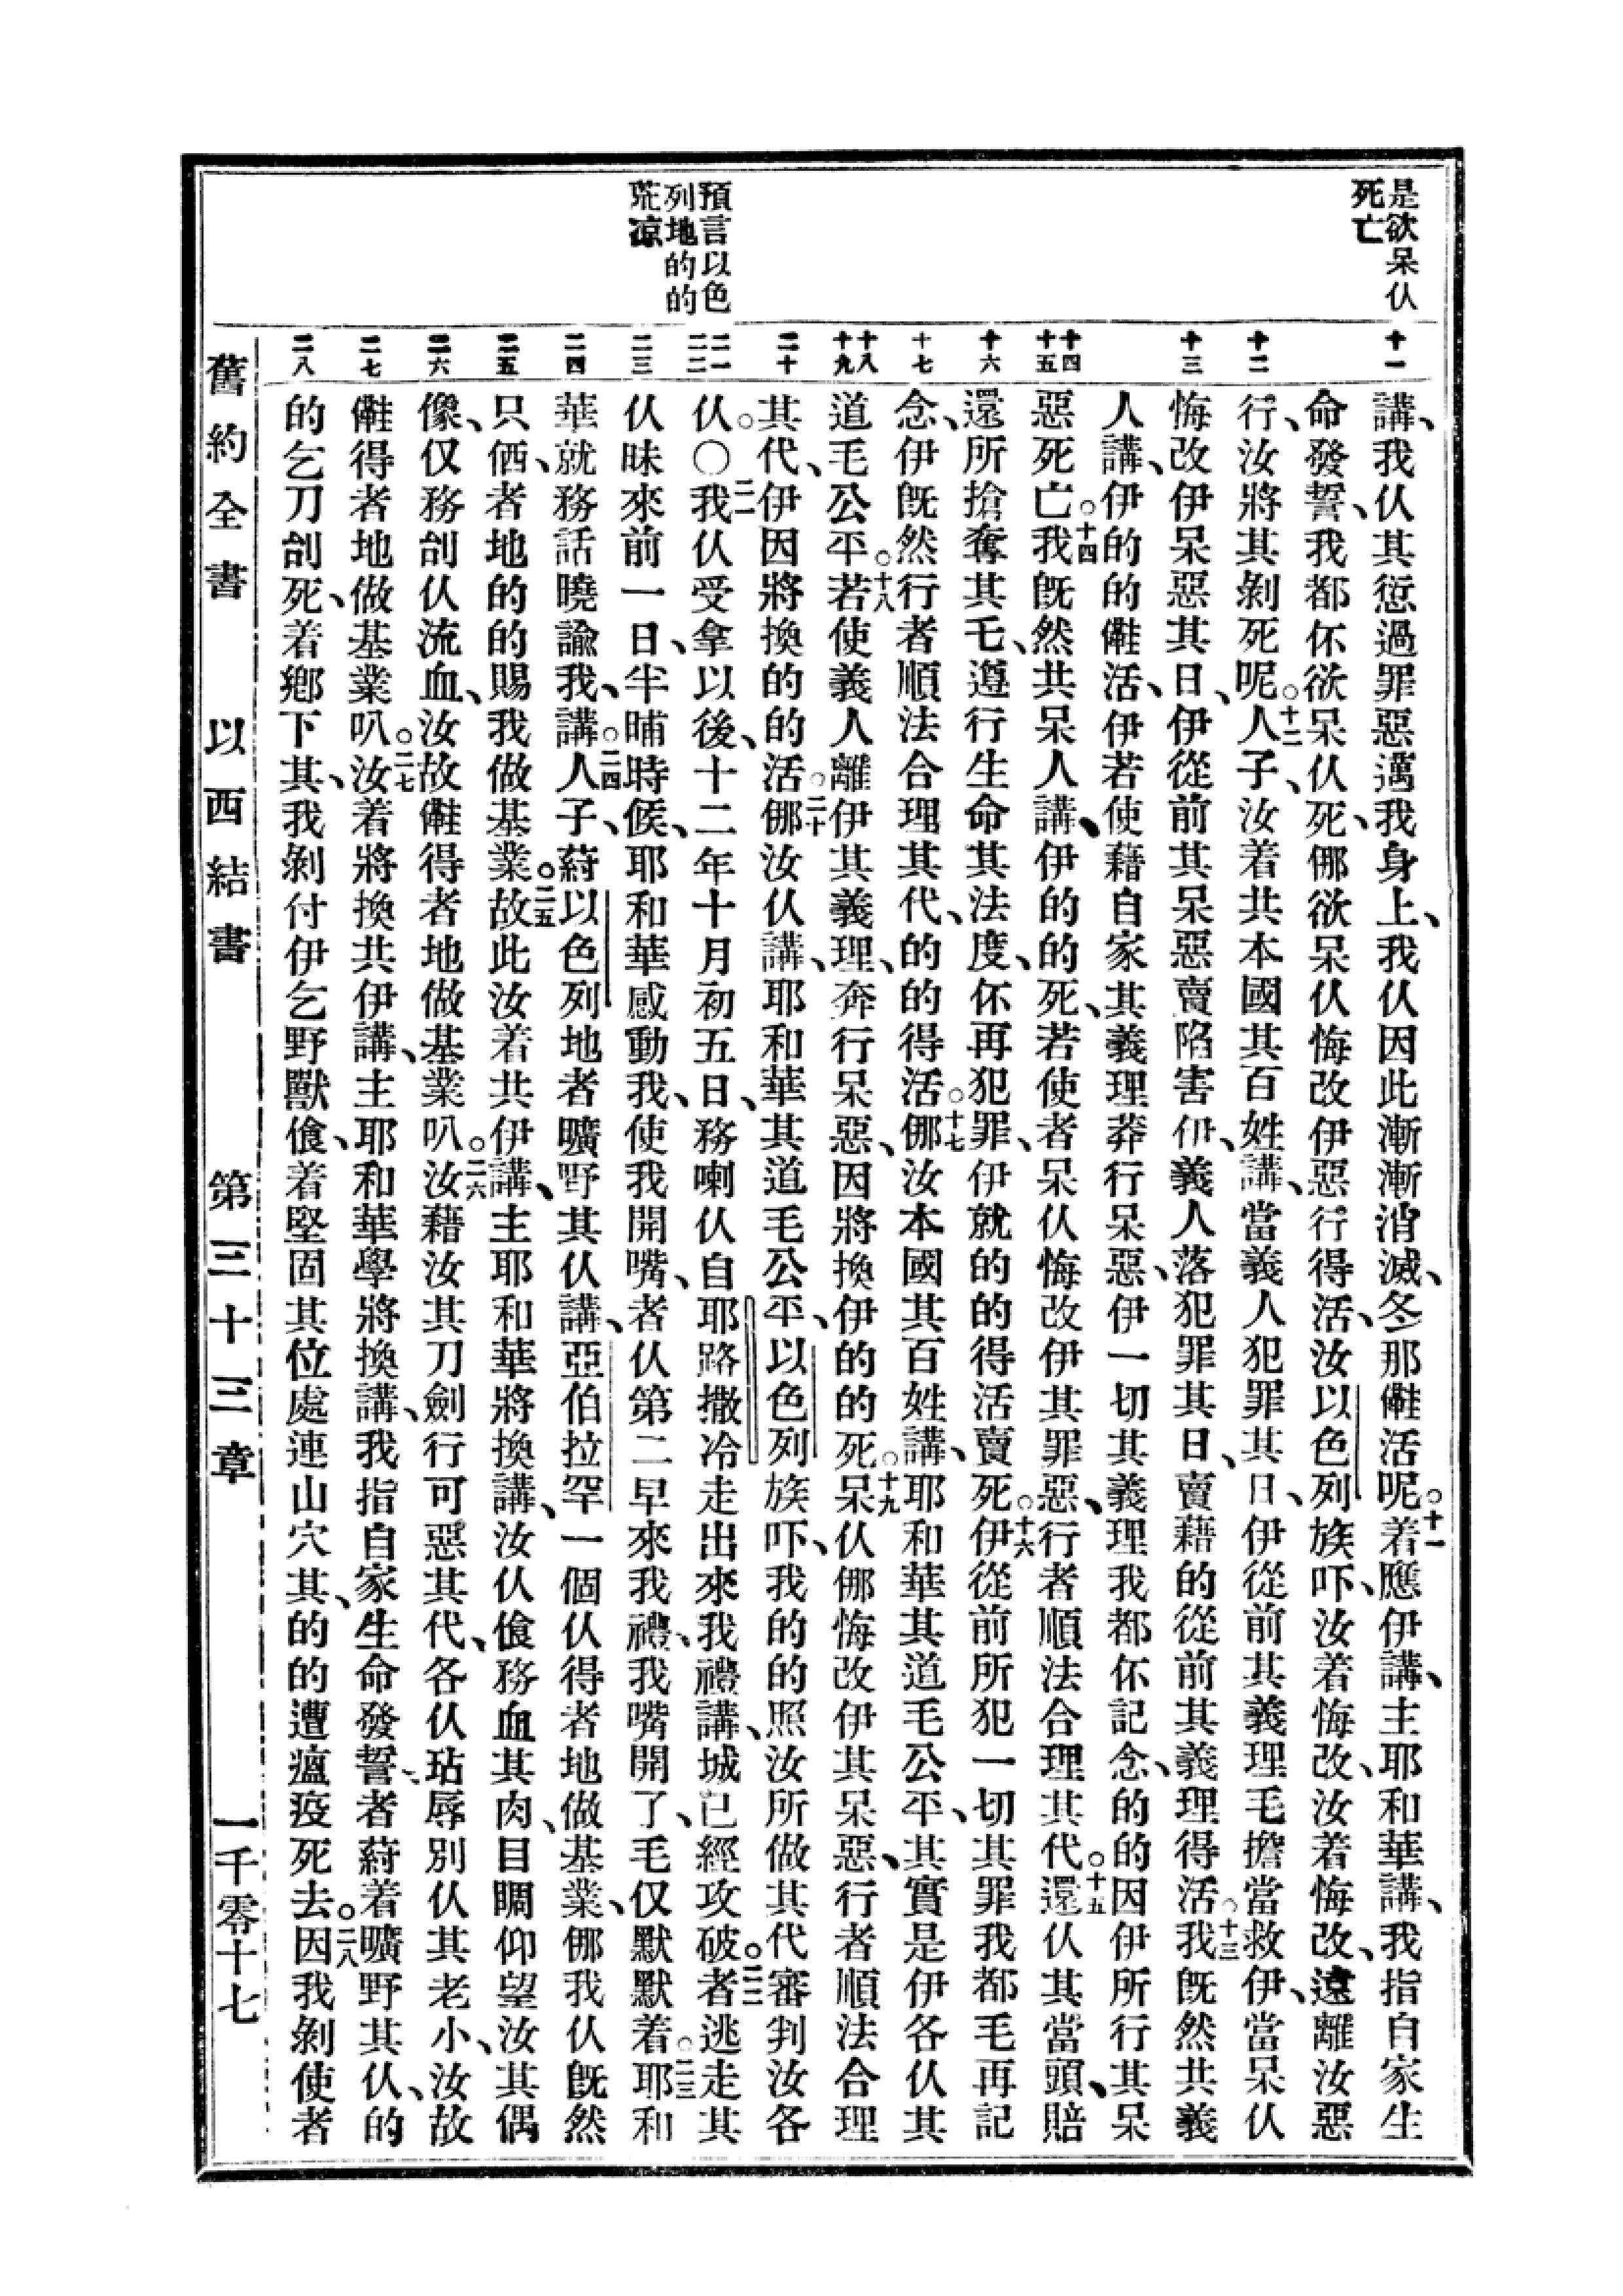 是欲呆仈
死亡
預言以色
列地的的
荒凉
十一
十二
十三
十四
十五
十六
十七
十八
十九
二十
二一
二二
二三
二四
二五
二六
二七
二八
講、我仈其愆過罪惡邁我身上、我仈因此漸漸消滅、冬那𣍐活呢。十一着應伊講、主耶和華講、我指自家生
命發誓、我都伓欲呆仈死、㑚欲呆仈悔改伊惡行得活、汝以色列族吓、汝着悔改、汝着悔改、遠離汝惡
行、汝將其剝死呢。十二人子、汝着共本國其百姓講、當義人犯罪其日、伊從前其義理毛擔當救伊、當呆仈
悔改伊呆惡其日、伊從前其呆惡賣陷害伊、義人落犯罪其日、賣藉的從前其義理得活。十三我旣然共義
人講、伊的的𣍐活、伊若使藉自家其義理莽行呆惡、伊一切其義理我都伓記念、的的因伊所行其呆
惡死亡。十四我旣然共呆人講、伊的的死、若使者呆仈悔改伊其罪惡、行者順法合理其代。十五還仈其當頭、賠
還所搶奪其乇、遵行生命其法度、伓再犯罪、伊就的的得活賣死。十六伊從前所犯一切其罪我都毛再記
念、伊旣然行者順法合理其代、的的得活。十七㑚汝本國其百姓講、耶和華其道毛公平、其實是伊各仈其
道毛公平。十八若使義人離伊其義理、奔行呆惡、因將換伊的的死。十九呆仈㑚悔改伊其呆惡、行者順法合理
其代、伊因將換的的活。二十㑚汝仈講、耶和華其道毛公平、以色列族吓、我的的照汝所做其代審判汝各
仈。〇二一我仈受拿以後、十二年十月初五日、務喇仈自耶路撒冷走出來我禮講、城已經攻破。二二者逃走其
仈昧來前一日、半晡時候、耶和華感動我、使我開嘴、者仈第二早來我禮、我嘴開了、毛仅默默着。二三耶和
華就務話曉諭我、講。二四人子、葑以色列地者曠野其仈講、亞伯拉罕一個仈得者地做基業、㑚我仈旣然
只価、者地的的賜我做基業。二五故此汝着共伊講、主耶和華將換講、汝仈飡務血其肉、目睭仰望汝其偶
像、仅務刣仈流血、汝故𣍐得者地做基業叭。二六汝藉汝其刀劍行可惡其代、各仈玷辱別仈其老小、汝故
𣍐得者地做基業叭。二七汝着將換共伊講、主耶和華學將換講、我指自家生命發誓、者葑着曠野其仈、的
的乞刀刣死、着鄕下其、我剝付伊乞野獸飡、着堅固其位處連山穴其、的的遭瘟疫死去。二八因我剝使者
舊約全書　以西結書　第三十三章　一千零十七